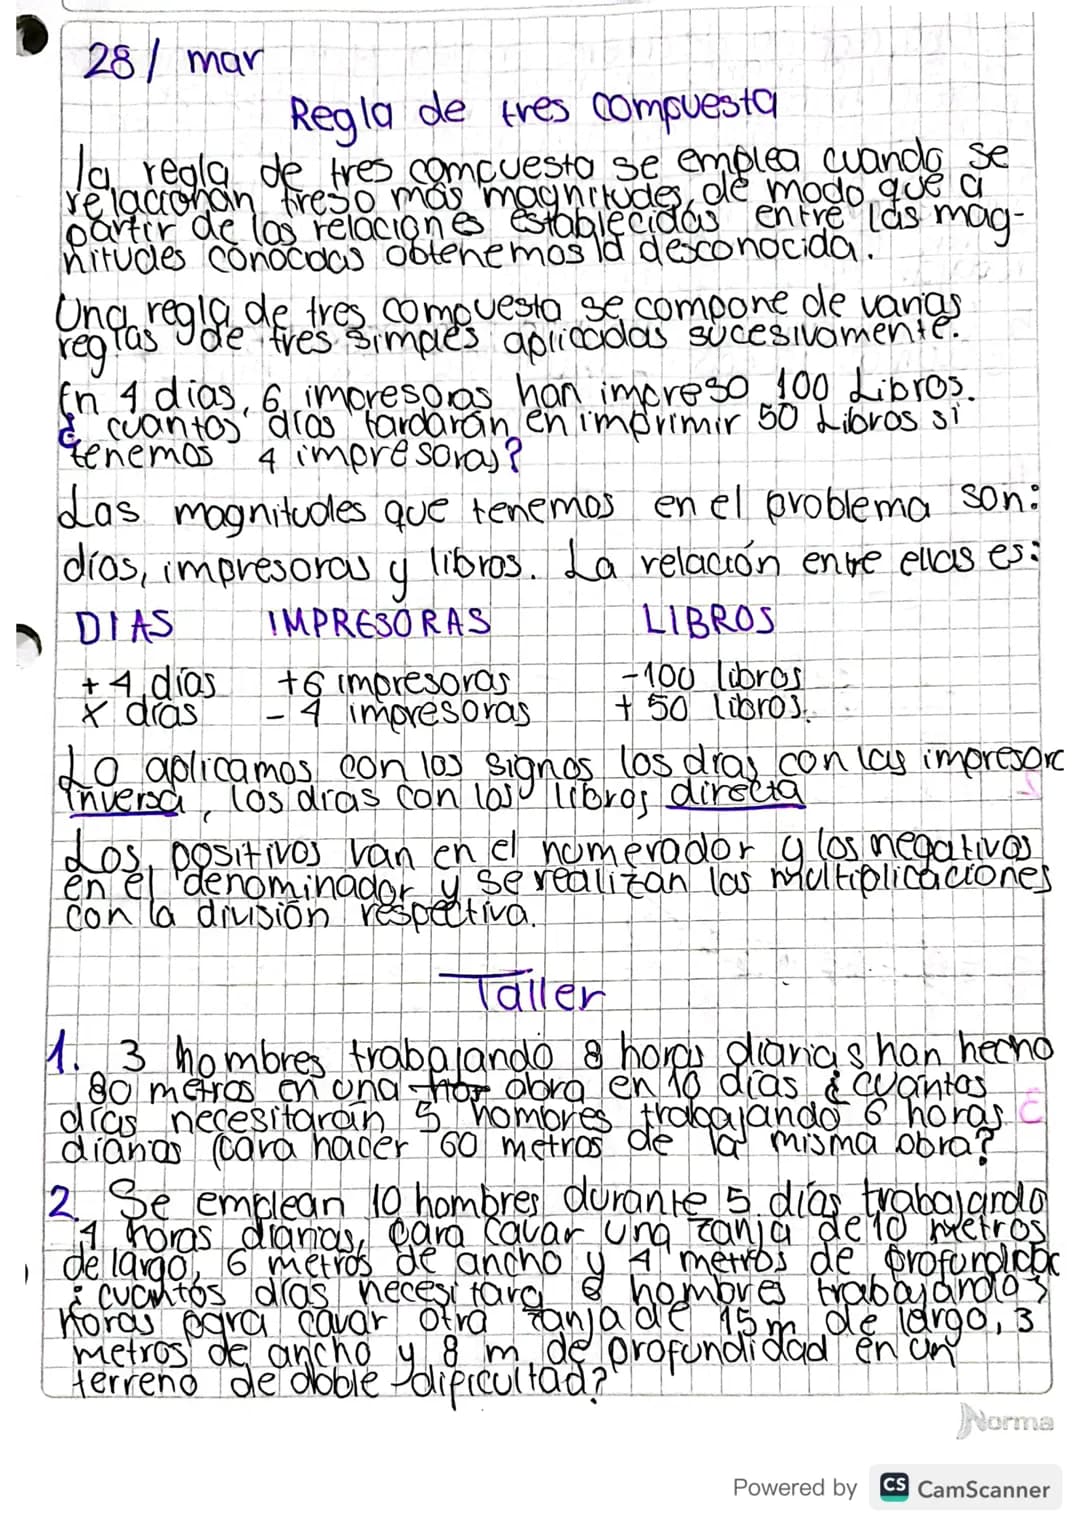 28/ mar
Regla de tres compuesta
la regla de tres compuesta se emplea cuando se
relacionan tres o más magnitudes, de modo que a
partir de las relaciones establecidas entre las mag-
nitudes conocdas obtenemos la desconocida.
Una regla de tres compuesta se compone de varias
reglas de tres simples aplicadas sucesivamente.
En 4 dias, 6 impresoras han impreso 100 Libros.
¿ cuantos días tardarán en imprimir 50 Libros si
tenemos 4 impresoras?
Las magnitudes que tenemos en el problema son:
días, impresoras y libros. La relación entre ellas es:
DIAS IMPRESORAS LIBROS
+ 4 días +6 impresoras -100 libros
x días - 4 impresoras + 50 libros.
Lo aplicamos con los signos los dias con las impresora
inversa, los dias con los libros directa
Los positivos van en el numerador y los negativos
en el denominador y se realizan las multiplicaciones
con la división respectiva.
Taller
1. 3 hombres trabajando 8 horas diarias han hecho
80 metros en una obra en 10 días ¿cuantos
días necesitarán 5 hombres trabajando 6 horas
diarias para hacer 60 metros de la misma obra?
2. Se emplean 10 hombres durante 5 días trabajando
4 horas diarias, para cavar una zanja de 10 metros
de largo, 6 metros de ancho y 4 metros de profundidad
¿cuantos días necesitara 6 hombres trabajando 3
horas para cavar otra zanja de 15m de largo, 3
metros de ancho y 8 m de profundidad en un
terreno de doble dificultad?
Norma
Powered by CS CamScanner